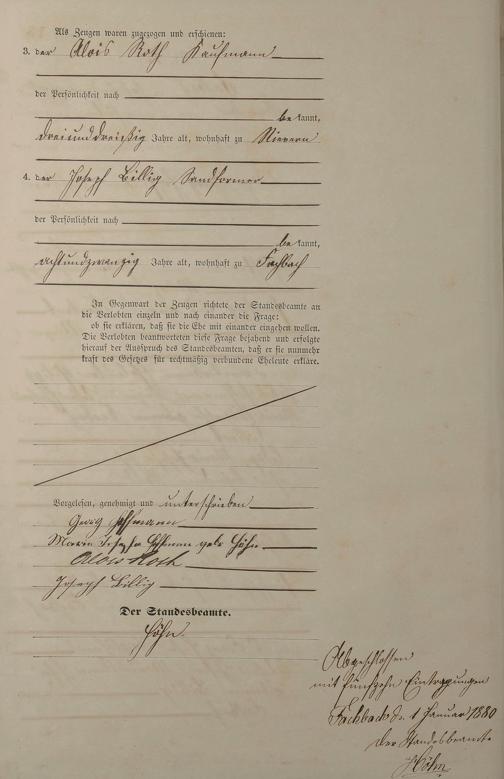 Als Zeugen waren zugezogen und erschienen:
3. der Alois Roth Kaufmann
der Persönlichkeit nach
be kannt,
dreiunddreißig Jahre alt, wohnhaft zu Nievern
4. der Joseph Billig Sandformer
der Persönlichkeit nach
be kannt,
achtundzwanzig Jahre alt, wohnhaft zu Fachbach
In Gegenwart der Zeugen richtete der Standesbeamte an
die Verlobten einzeln und nach einander die Frage:
ob sie erklären, daß sie die Ehe mit einander eingehen wollen.
Die Verlobten beantworteten diese Frage bejahend und erfolgte
hierauf der Ausspruch des Standesbeamten, daß er sie nunmehr
kraft des Gesetzes für rechtmäßig verbundene Eheleute erkläre.
Vorgelesen, genehmigt und unterschrieben
Georg Hofmann
Maria Josepha Hofmann geb. Höhn
Alois Roth
Joseph Billig
Der Standesbeamte.
Höhn
Abgeschlossen
mit fünfzehn Eintragungen
Fachbach d. 1 Januar 1880
Der Standesbeamte
Höhn